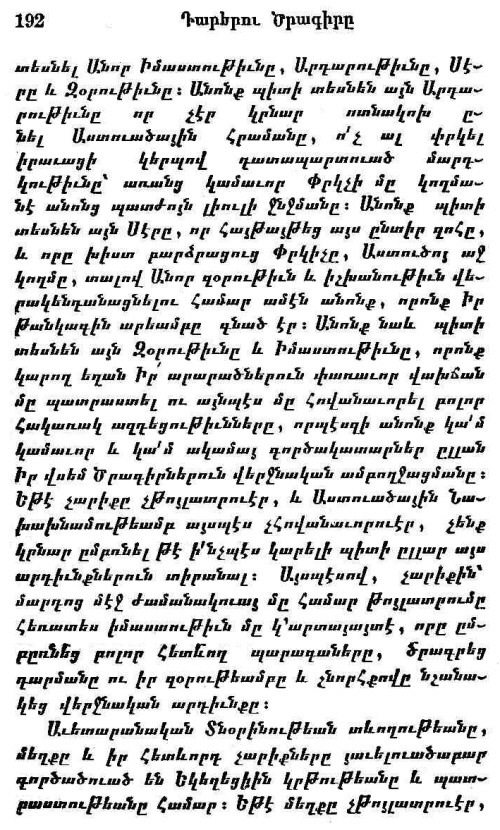 192 Դարերու Ծրագիրը
տեսնել Անոր Իմաստութիւնը, Արդարութիւնը, Սէ-
րը և Զօրութիւնը։ Անոնք պիտի տեսնեն այն Արդա-
րութիւնը որ չէր կրնար ոտնակոխ ը-
նել Աստուածային Հրամանը, ո՛չ ալ փրկել
իրաւացի կերպով դատապարտուած մարդ-
կութիւնը՝ առանց կամաւոր Փրկչի մը կողմա-
նէ անոնց պատժոյն լիուլի ջնջմանը։ Անոնք պիտի
տեսնեն այն Սէրը, որ Հայթայթեց այս ընտիր զոհը,
և որը խիստ բարձրացուց Փրկիչը, Աստուծոյ աջ
կողմը, տալով Անոր զօրութիւն և իշխանութիւն վե-
րակենդանացնելու Համար ամէն անոնք, որոնք Իր
Թանկագին արեամբը գնած էր։ Անոնք նաև պիտի
տեսնեն այն Զօրութիւնը և Իմաստութիւնը, որոնք
կարող եղան Իր՛ արարածներուն փառաւոր վախճան
մը պատրաստել ու այնպէս մը հովանաւորել բոլոր
Հակառակ ազդեցութիւնները, որպէսզի անոնք կա՛մ
կամաւոր և կա՛մ ակամայ գործակատարներ ըլլան
Իր վսեմ Ծրագիրներուն վերջնական ամբողջացմանը։
Եթէ չարիքը չթոյլատրուէր, և Աստուածային Նա-
խախնամութեամբ այսպէս չհովանաւորուէր, չենք
կրնար ըմբռնել թէ ի՛նչպէս կարելի պիտի ըլլար այս
արդիւնքներուն տիրանալ։ Այսպէսով, չարիքին՝
մարդոց մէջ ժամանակուայ մը համար թոյլատրումը
հեռատես իմաստութիւն մը կ՚արտայայտէ, որը ըմ-
բըռնեց բոլոր հետևող պարագաները, ծրագրեց
դարմանը ու իր զօրութեամբը և շնորհքովը նշանա-
կեց վերջնական արդիւնքը։
Աւետարանական Տնօրինութեան տևողութեանը,
մեղքը և իր հետևորդ չարիքները յաւելուածաբար
գործածուած են Եկեղեցիին կրթութեանը և պատ-
րաստութեանը համար։ Եթէ մեղքը չթոյլատրուէր,